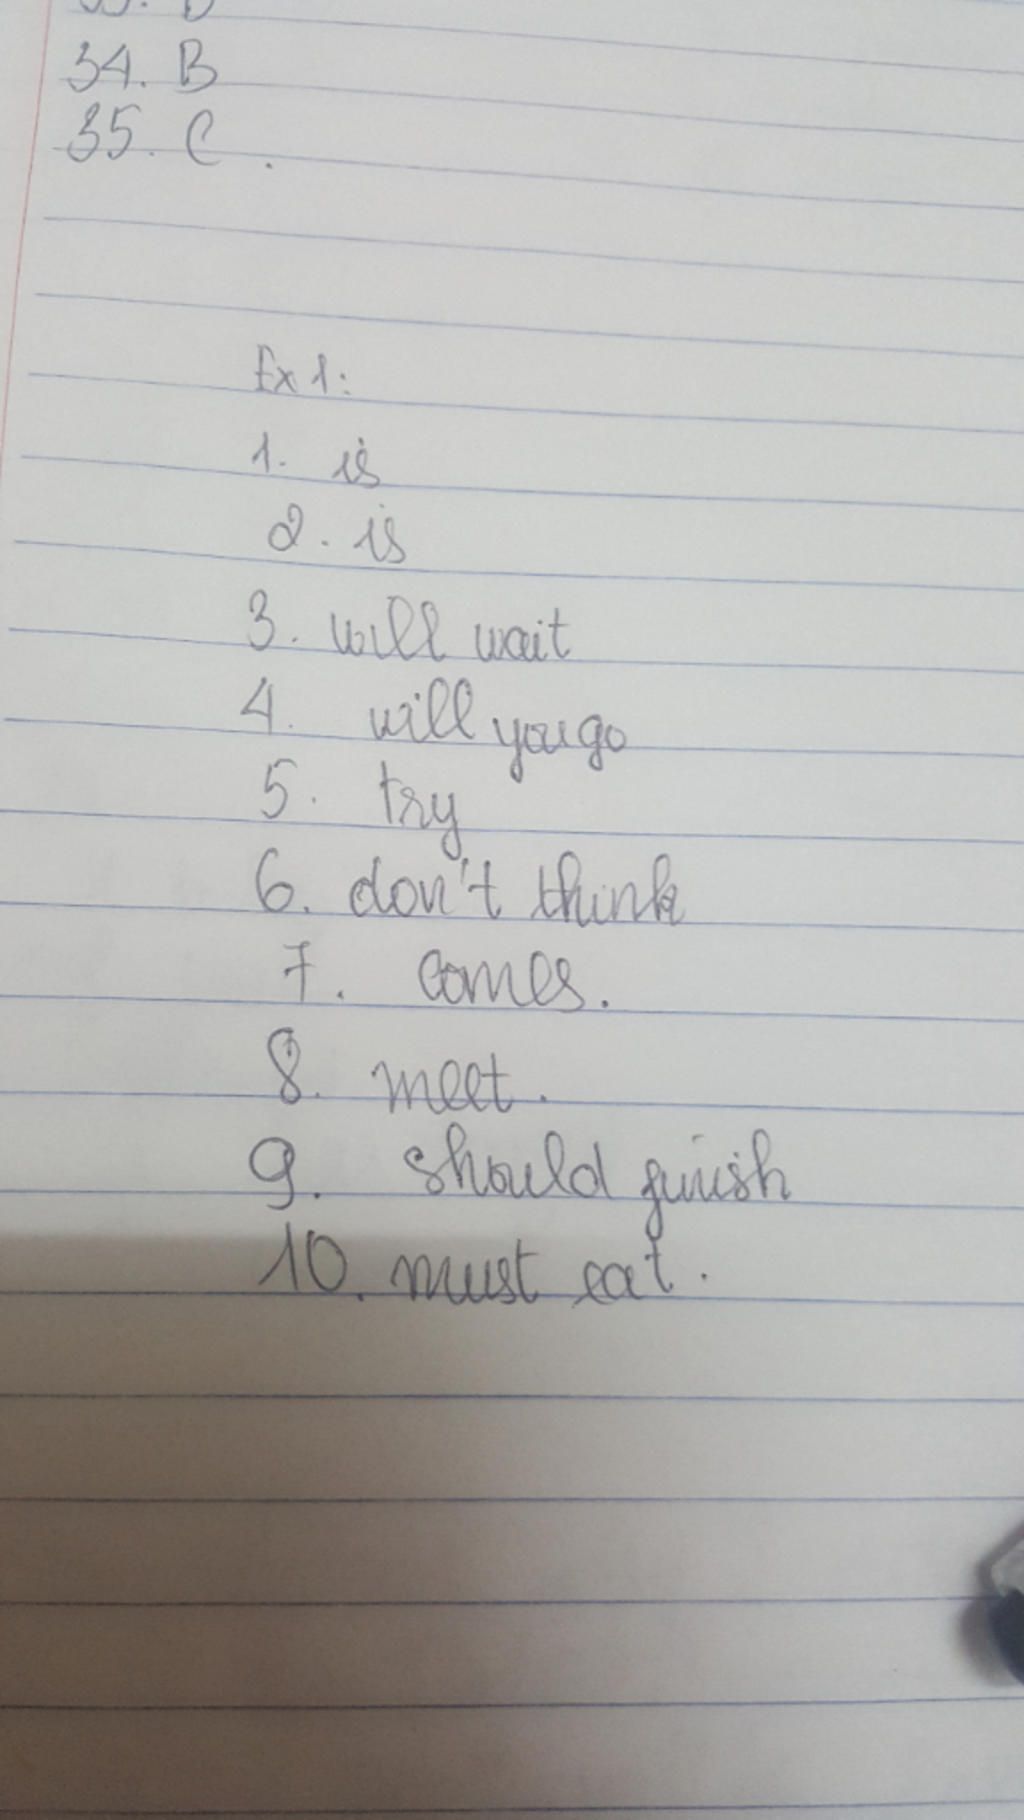 34. B
35. C.
Ex 1:
1. is
2. is
3. will wait
4. will you go
5. try
6. don't think
7. comes.
8. meet.
9. should finish
10. must eat.